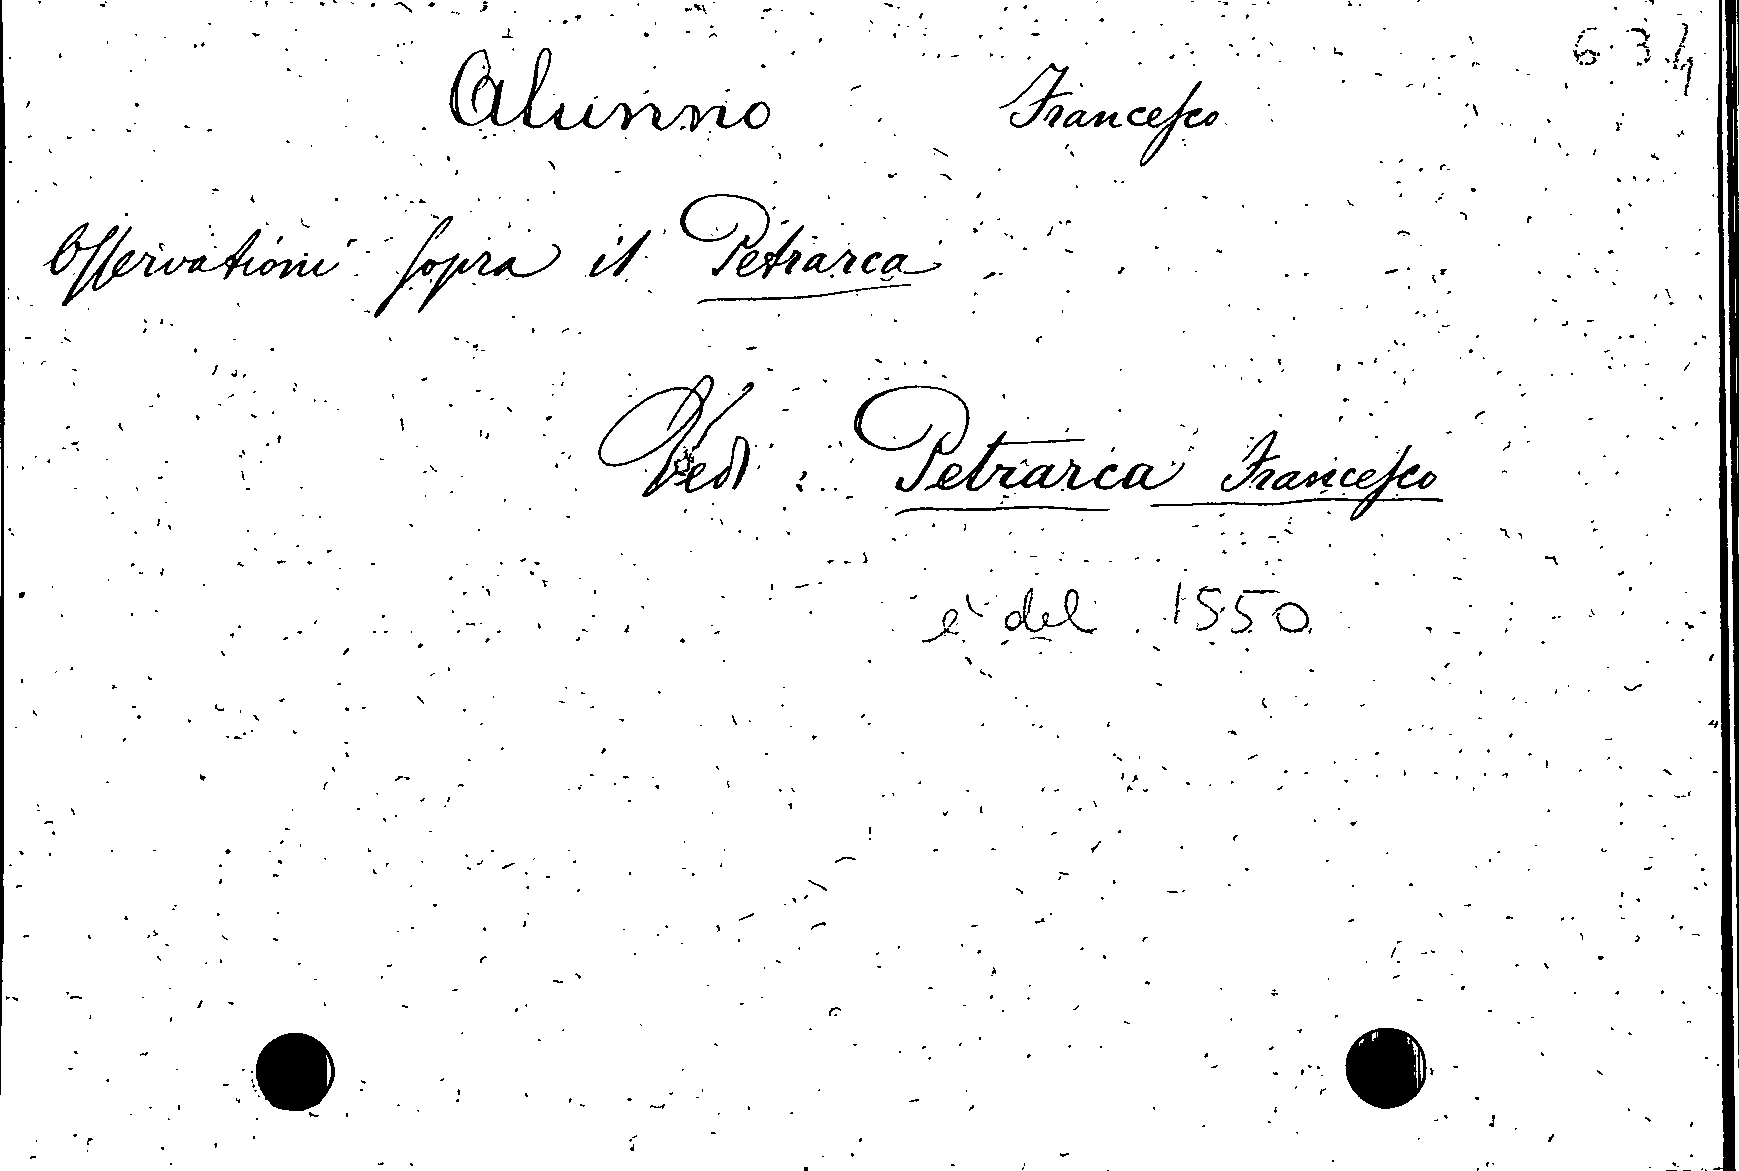 634
Alunno Francesco
Osservationi sopra il Petrarca
Vedi : Petrarca Francesco
è del 1550